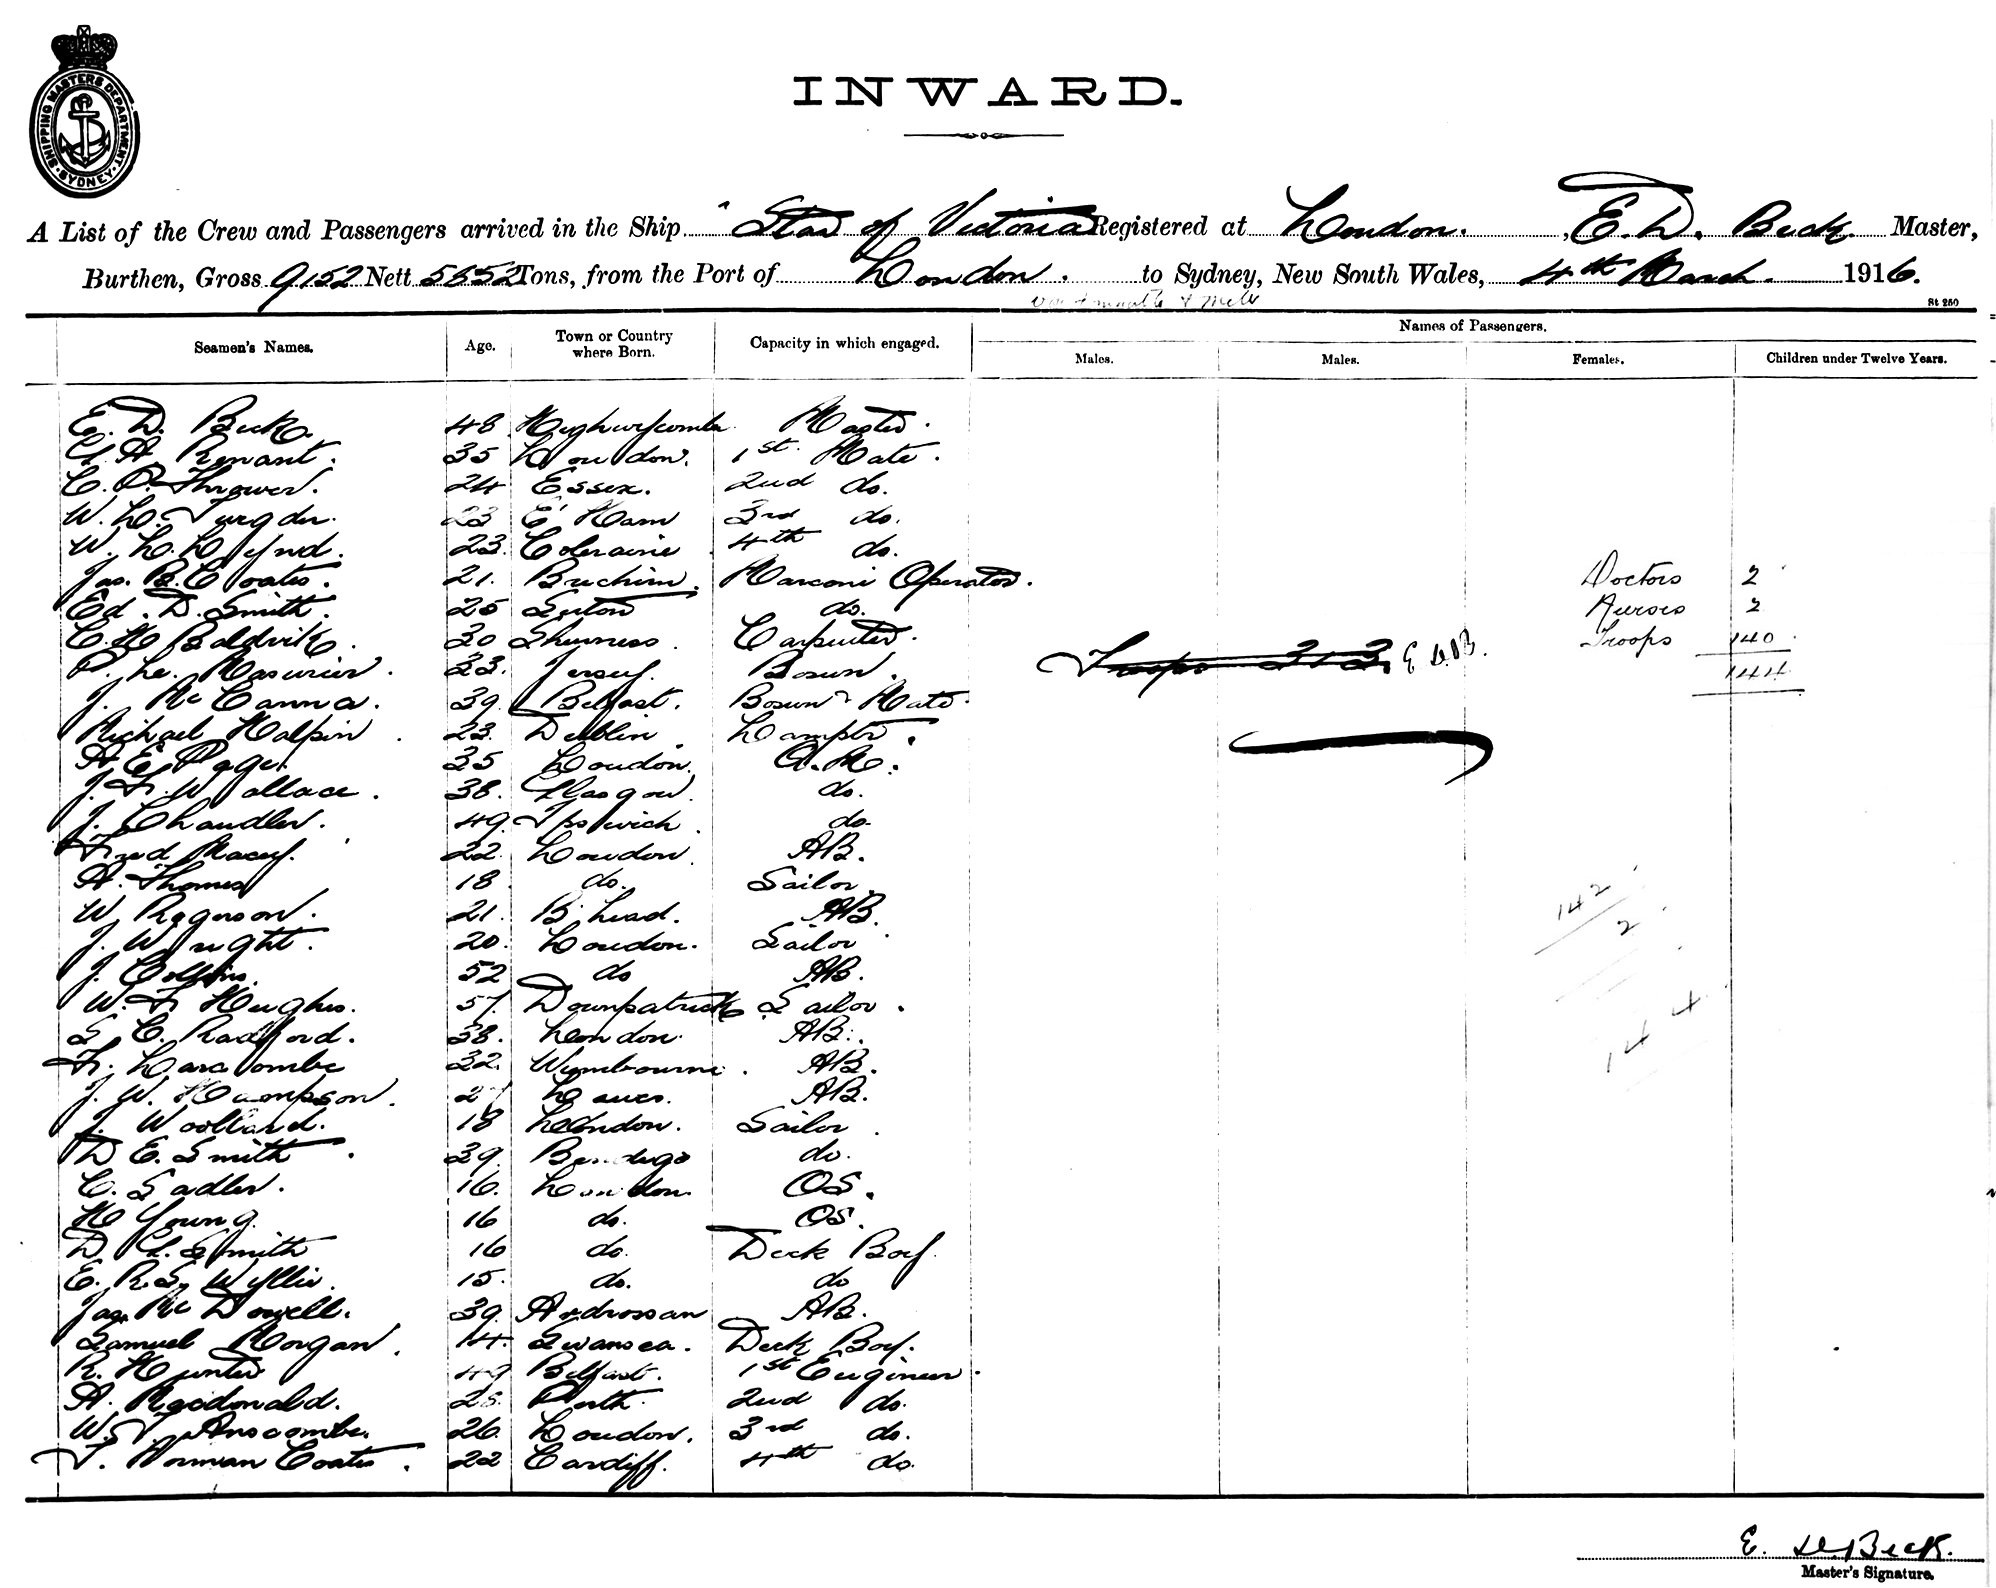 SHIPPING MASTERS DEPARTMENT. SYDNEY.
INWARD.
A List of the Crew and Passengers arrived in the Ship "Star of Victoria Registered at London. , E. D. Beck. Master,
Burthen, Gross 9152 Nett 5852 Tons, from the Port of London. to Sydney, New South Wales, 4th March. 1916.
St 250
Names of Passengers.
Seamen's Names. Age. Town or Country where Born. Capacity in which engaged. Males. Males. Females. Children under Twelve Years.
E. D. Beck. 48 Highwycombe Master.
Renant. 35 London. 1st Mate.
C. P. Thrower. 24 Essex. 2nd do.
W. L. 23 E' Ham 3rd do.
W. L. Lynd. 23. Coleraine 4th do.
Jas. B. Coates. 21. Brechin. Marconi Operator. Doctors 2
Ed. D. Smith. 25 do. Nurses 2
C. H. Baldwik. 30 Sheerness. Carpenter. Troops 140
P. Le. Masurier. 23. Jersey. Bosun. Troops 313. E D B. 144
J. McCanna. 39. Belfast. Bosun's Mate.
Richael Halpin. 23. Dublin. Lamptr.
A. E. Page. 35 London. Q.M.
J. F. Wallace. 38. Glasgow. do.
J. Chandler. 49. Ipswich. do.
Fred Macey. 22. London. AB.
A. Thomas 18 do. Sailor.
W. Rogerson. 21. B'head. AB.
J. Wright. 20. London. Sailor
J. Collins. 52 do AB.
W. F. Hughes. 57. Downpatrick Sailor.
S. C. Radford. 38. London. AB.
F. Larcombe 32. Wimbourne. AB.
J. W. Hampson. 27 AB.
J. Woollard. 18 London. Sailor.
D. E. Smith. 39. Bendigo do.
C. Sadler. 16. London. OS.
H. Young. 16 do. OS.
D. L. Smith 16 do. Deck Boy.
E. R. S. Wyllie. 15. do. do
Jas. McDowell. 39. Ardrossan AB.
Samuel Morgan. 14. Swansea. Deck Boy.
R. Hunter 49 Belfast. 1st Engineer.
A. Macdonald. 28. Perth. 2nd do.
W. Anscombe. 26. London. 3rd do.
T. Norman Coates. 22 Cardiff. 4th do.
142
2
144
E. D. Beck.
Master's Signature.